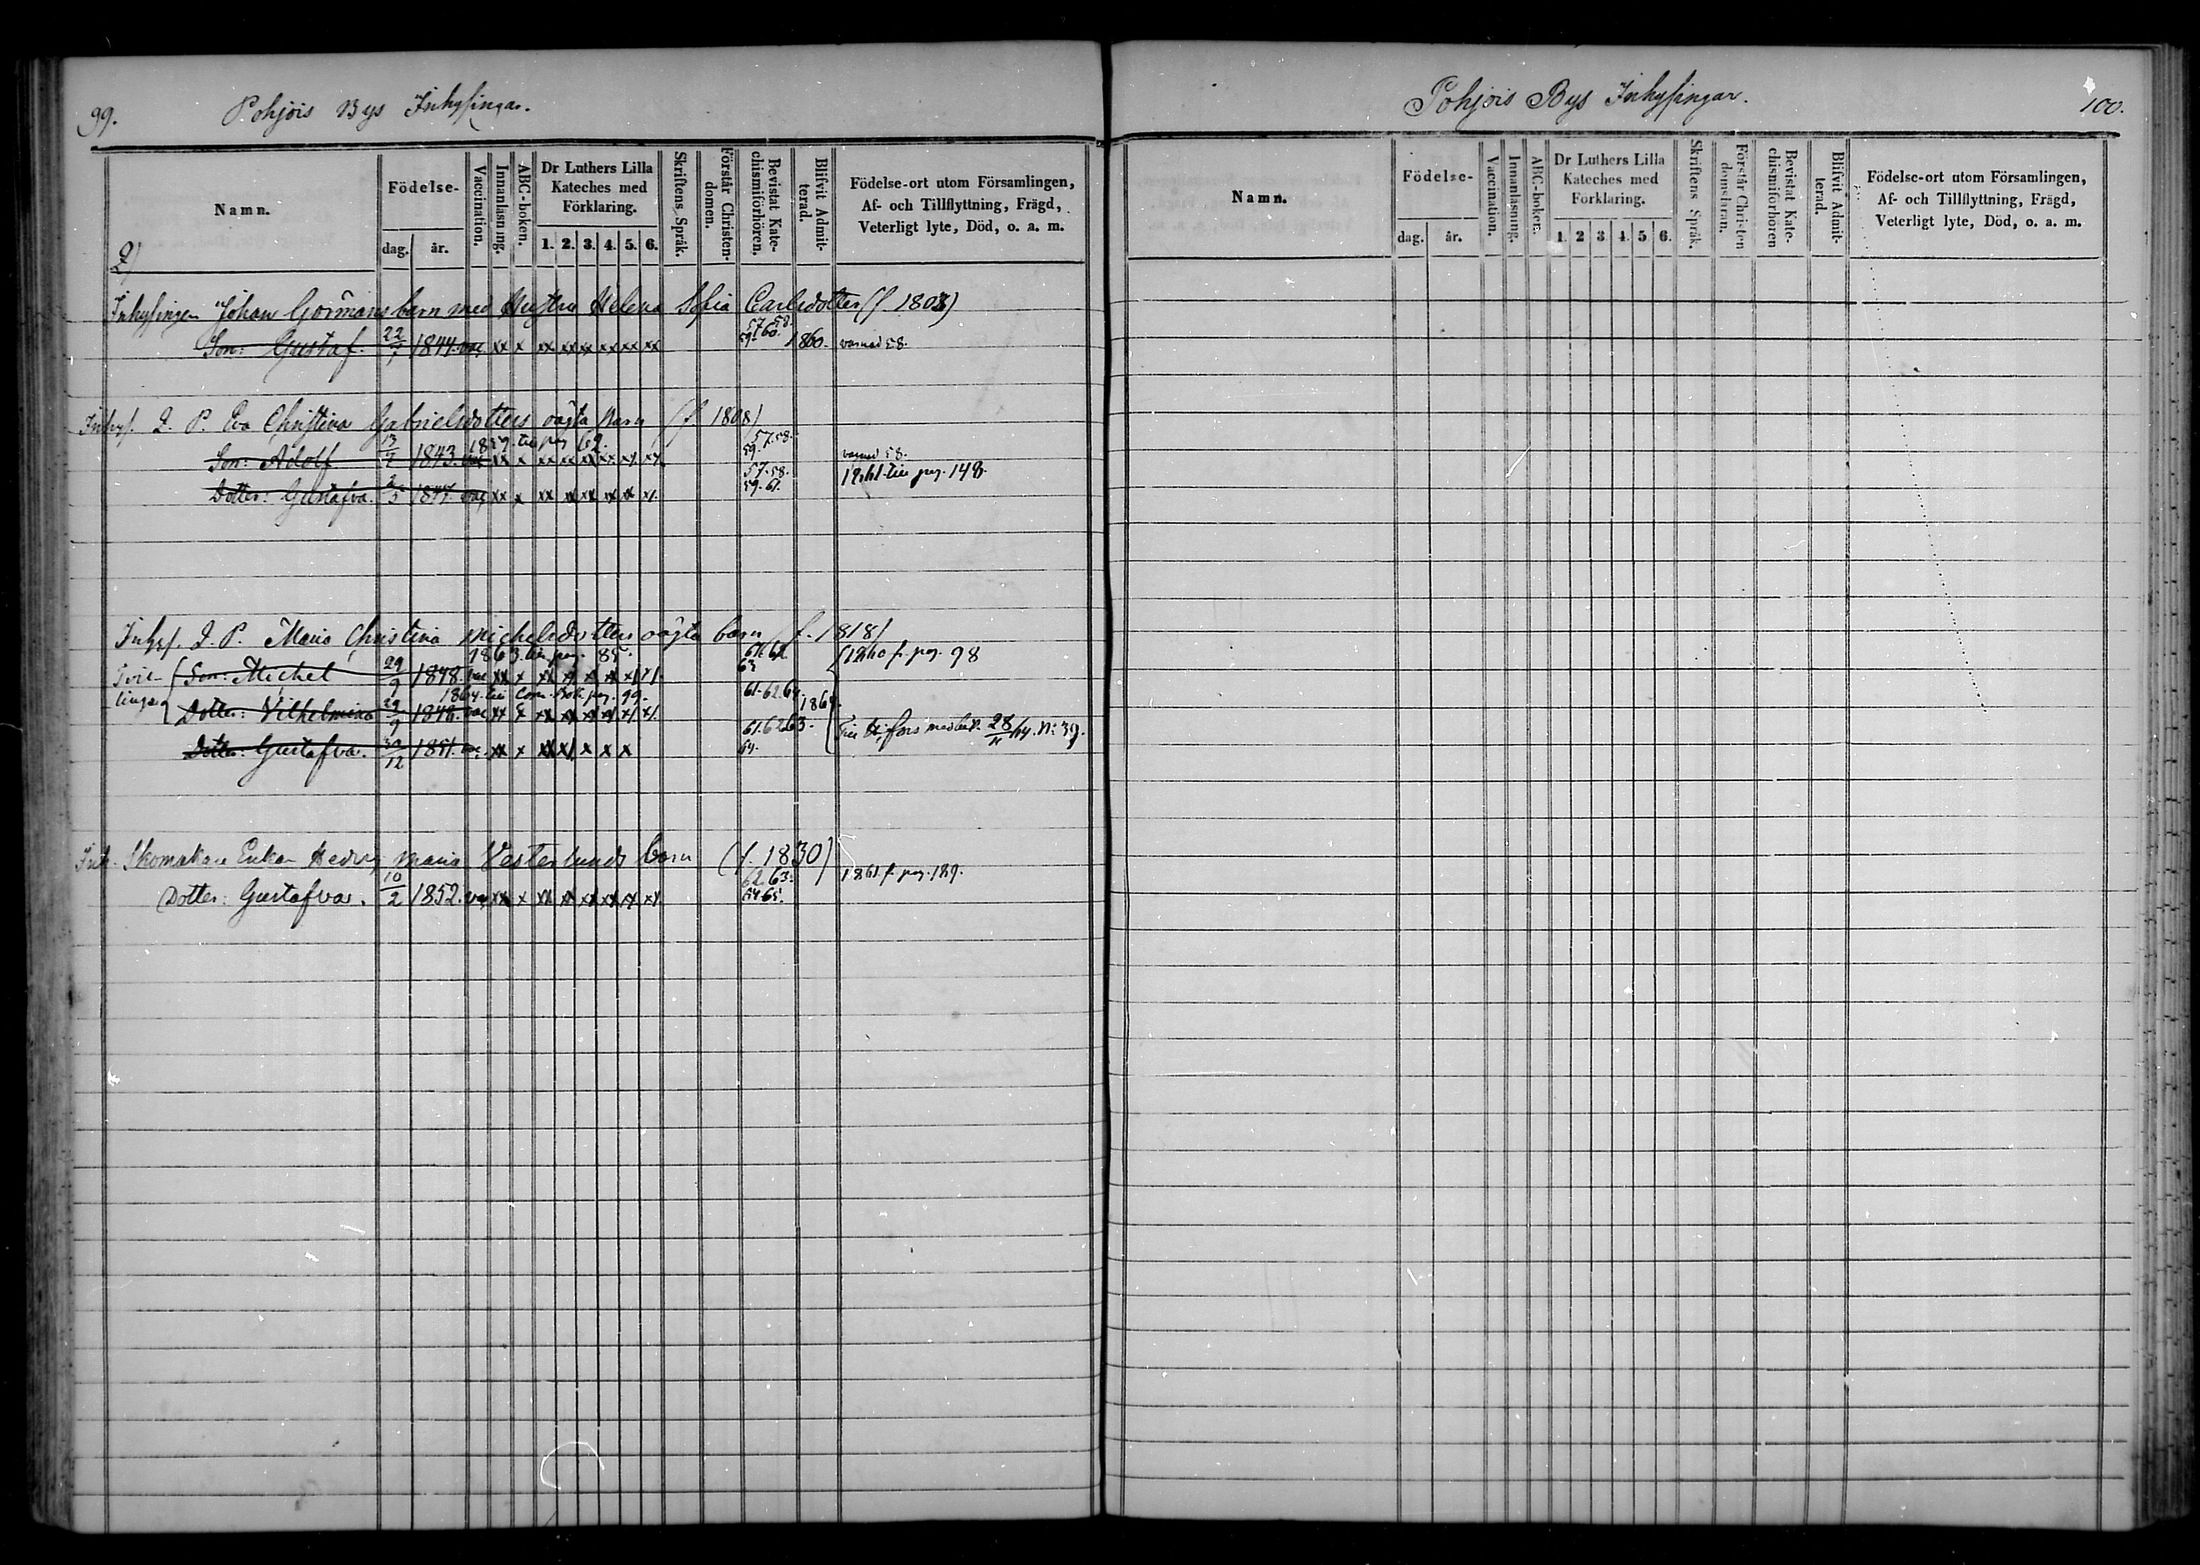 99. Pohjois Bys Inhysingar.
Namn. Födelse- dag. år. Vaccination. Innanläsning. ABC-boken. Dr Luthers Lilla Kateches med Förklaring. 1. 2. 3. 4. 5. 6. Skriftens Språk. Förstår Christendomen. Bevistat Katechismiförhören. Blifvit Admitterad. Födelse-ort utom Församlingen, Af- och Tillflyttning, Frägd, Veterligt lyte, Död, o. a. m.
2)
Inhysingen Johan Görmans barn med Hustru Helena Sofia Carlsdotter (f. 1803)
57. 58.
Son: Gustaf. 22/7 1844. vac xx x xx xx xx xx xx xx 59. 60. 1860. varnad 58.
Inhys. Q. P. Eva Christina Gabrielsdotters oägta barn (f 1808)
1859. till pag 62. 57. 58.
Son: Adolf 1843. vac xx x xx xx xx xx xx xx 59. varnad 58.
57. 58. 1861 till pag. 148.
Dotter: Gustafva. 2/5 1847. vac xx x xx xx xx xx xx xx 59. 61.
Inhys. Q. P. Maria Christina Michelsdotters oägta barn f. 1818)
1863. till pag. 85. 61. 62 1860 f. pag. 98
Tvillingar Son: Michel 29/9 1848. vac xx x xx xx xx xx xx xx 63
1864. till Com. Bok. pag. 99. 61. 62. 64. 1864.
Dotter: Vilhelmina 29/9 1848. vac xx x xx xx xx xx xx xx
61. 62 63. Till H:fors med bet. 28/11 64. N: 39.
Dotter: Gustafva. 30/12 1851. vac. xx x xx xx x x x 64.
Inh. Skomakare Enkan Hedvig Maria Vesterlunds barn (f. 1830)
62. 63. 1861 f. pag. 189.
Dotter: Gustafva. 10/2 1852. vac xx x xx xx xx xx xx xx 64 65.
Pohjois Bys Inhysingar. 100.
Namn. Födelse- dag. år. Vaccination. Innanläsning. ABC-boken. Dr Luthers Lilla Kateches med Förklaring. 1. 2 3. 4. 5 6. Skriftens Språk. Förstår Christendomsläran. Bevistat Katechismiförhören Blifvit Admitterad. Födelse-ort utom Församlingen, Af- och Tillflyttning, Frägd, Veterligt lyte, Död, o. a. m.